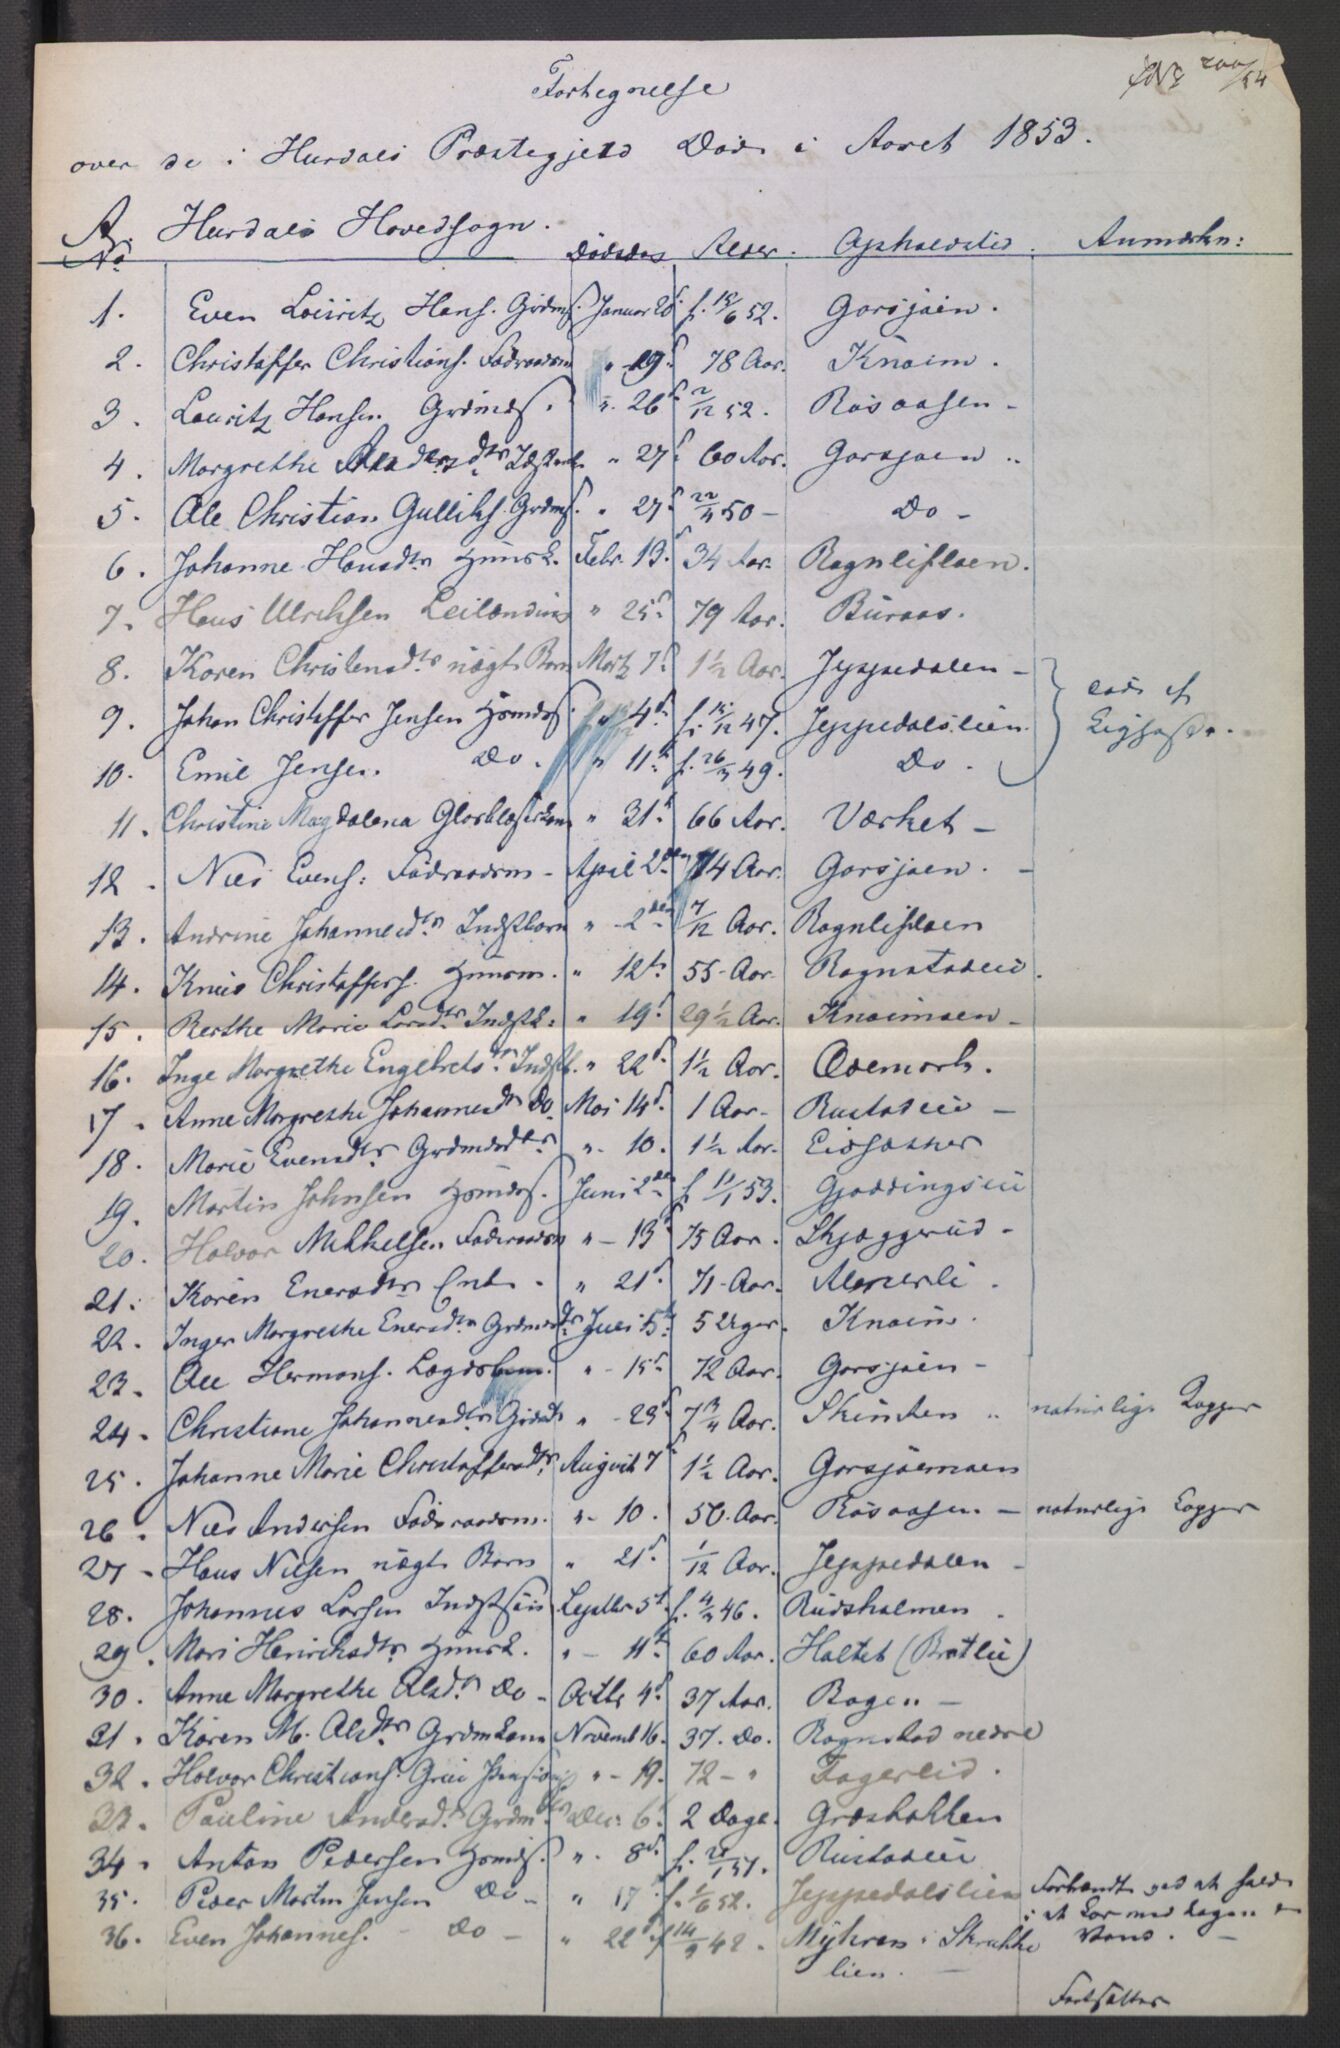 JNo 200/54
Fortegnelse
over de i Hurdals Præstegjeld Døde i Aaret 1853.
A. Hurdals Hovedsogn.
No Dödsdag Alder. Opholdsted. Anmærkn:
1. Even Lauritz Hans. Grdms. Januar 28d f. 18/6 52. Garsjøen.
2. Christoffer Christians. Föderaadsm " 19d 78 Aar. Knaim.
3. Lauritz Hansen Grdmds. " 26d 2/12 52. Rösaasen -
4. Margrethe dtr " 27d 60 Aar. Garsjøen "
5. Ole Christian Gulliks. Grdms. " 27d 22/4 50 - Do -
6. Johanne Hansdtr Huusk. Febr. 13d 34 Aar. Rognlifloen.
7. Hans Ulrichsen Leilænding " 25d 79 Aar. Buraas.
8. Karen Christensdtr uägte Barn Martz 7d 1 1/2 Aar. Jeppedalen -
9. Johan Christoffer Jensen Hsmds. " 4d f. 15/12 47. Jeppedalslien.
10. Emil Jensen. Do. " 11te f. 26/3 49. Do.
11. Christine Magdalena Glasblæserkone " 31te 66 Aar. Værket -
12. Niels Evens: Föderaadsm - April 2den 74 Aar. Garsjøen. -
13. Andrine Johannesdtr Indstbarn " - 2den 7/12 Aar. Rognlifloen
14. Knud Christoffers. Huusm. " 12te 55 - Aar. Rognstadeie.
15. Berthe Marie Larsdtr Indstk: " 19d 29 1/2 Aar. Knaimoen -
16. Inge Margrethe Engebretsdtr Indstb. " 22d 1 1/2 Aar. Ödemark.
17. Anne Margrethe Johannesdtr Do Mai 14d 1 Aar - Rustadeie -
18. Marie Evensdtr Grdmdsdtr " - 10. 1 1/2 Aar - Eidsasker
19. Martin Johnsen Hsmds. Juni 2den f. 11/1 53. Gjöddingseie
20. Halvor Mikkelsen Föderaadsm " - 13d 75 Aar. Skjæggerud -
21. Karen Enersdtr Enke - " 21d 71 - Aar.
22. Inger Margrethe Enersdtr Grdmdsdtr Juli 5te 5 Uger. Knaim.
23. Ole Hermans. Lægdslem. " - 15d 72 Aar. Garsjøen -
24. Christiane Johannesdtr " - 29d 7 3/4 Aar. Skrukken " naturlige Kopper
25. Johanne Marie Christoffersdtr August 7d 1 1/2 Aar. Garsjøemoen
26. Niels Andersen Föderaadsm. " - 10. 50 - Aar. Rösaasen - naturlige Kopper
27 - Hans Nilsen uägte Barn " 21d 1/12 Aar. Jeppedalen -
28. Johannes Larsen Indstsön Septbr 5te f. 4/3 46. Rudsholmen.
29. Mari Henriksdtr Huusk. " - 11te 60 Aar. Holtet (Bratlie)
30. Anne Margrethe Olsdtr Do - Octbr 4d 37 Aar. Bogen -
31. Karen M. Olsdtr Grdmkone Novemb 16. 37. Do. Rognstad nedre
32. Halvor Christians. " - 19. 72 - " Fagerlid.
33. Pauline Andersdtr Grdm. Dec. 6d 2 Dage. Græsbakken
34. Anton Pedersen Hsmds. " - 8d f. 51. Rustadeie
35. Peder Martin Jensen Do - " 17d f. 1/6 52. Jeppedalslien Forbrændt ved at falde
36. Even Johannes. Do - " 22d f 14/3 42. Myhren i Skrukke i et Kar med kogende
lien. Vand. -
döde af
Fortsættes